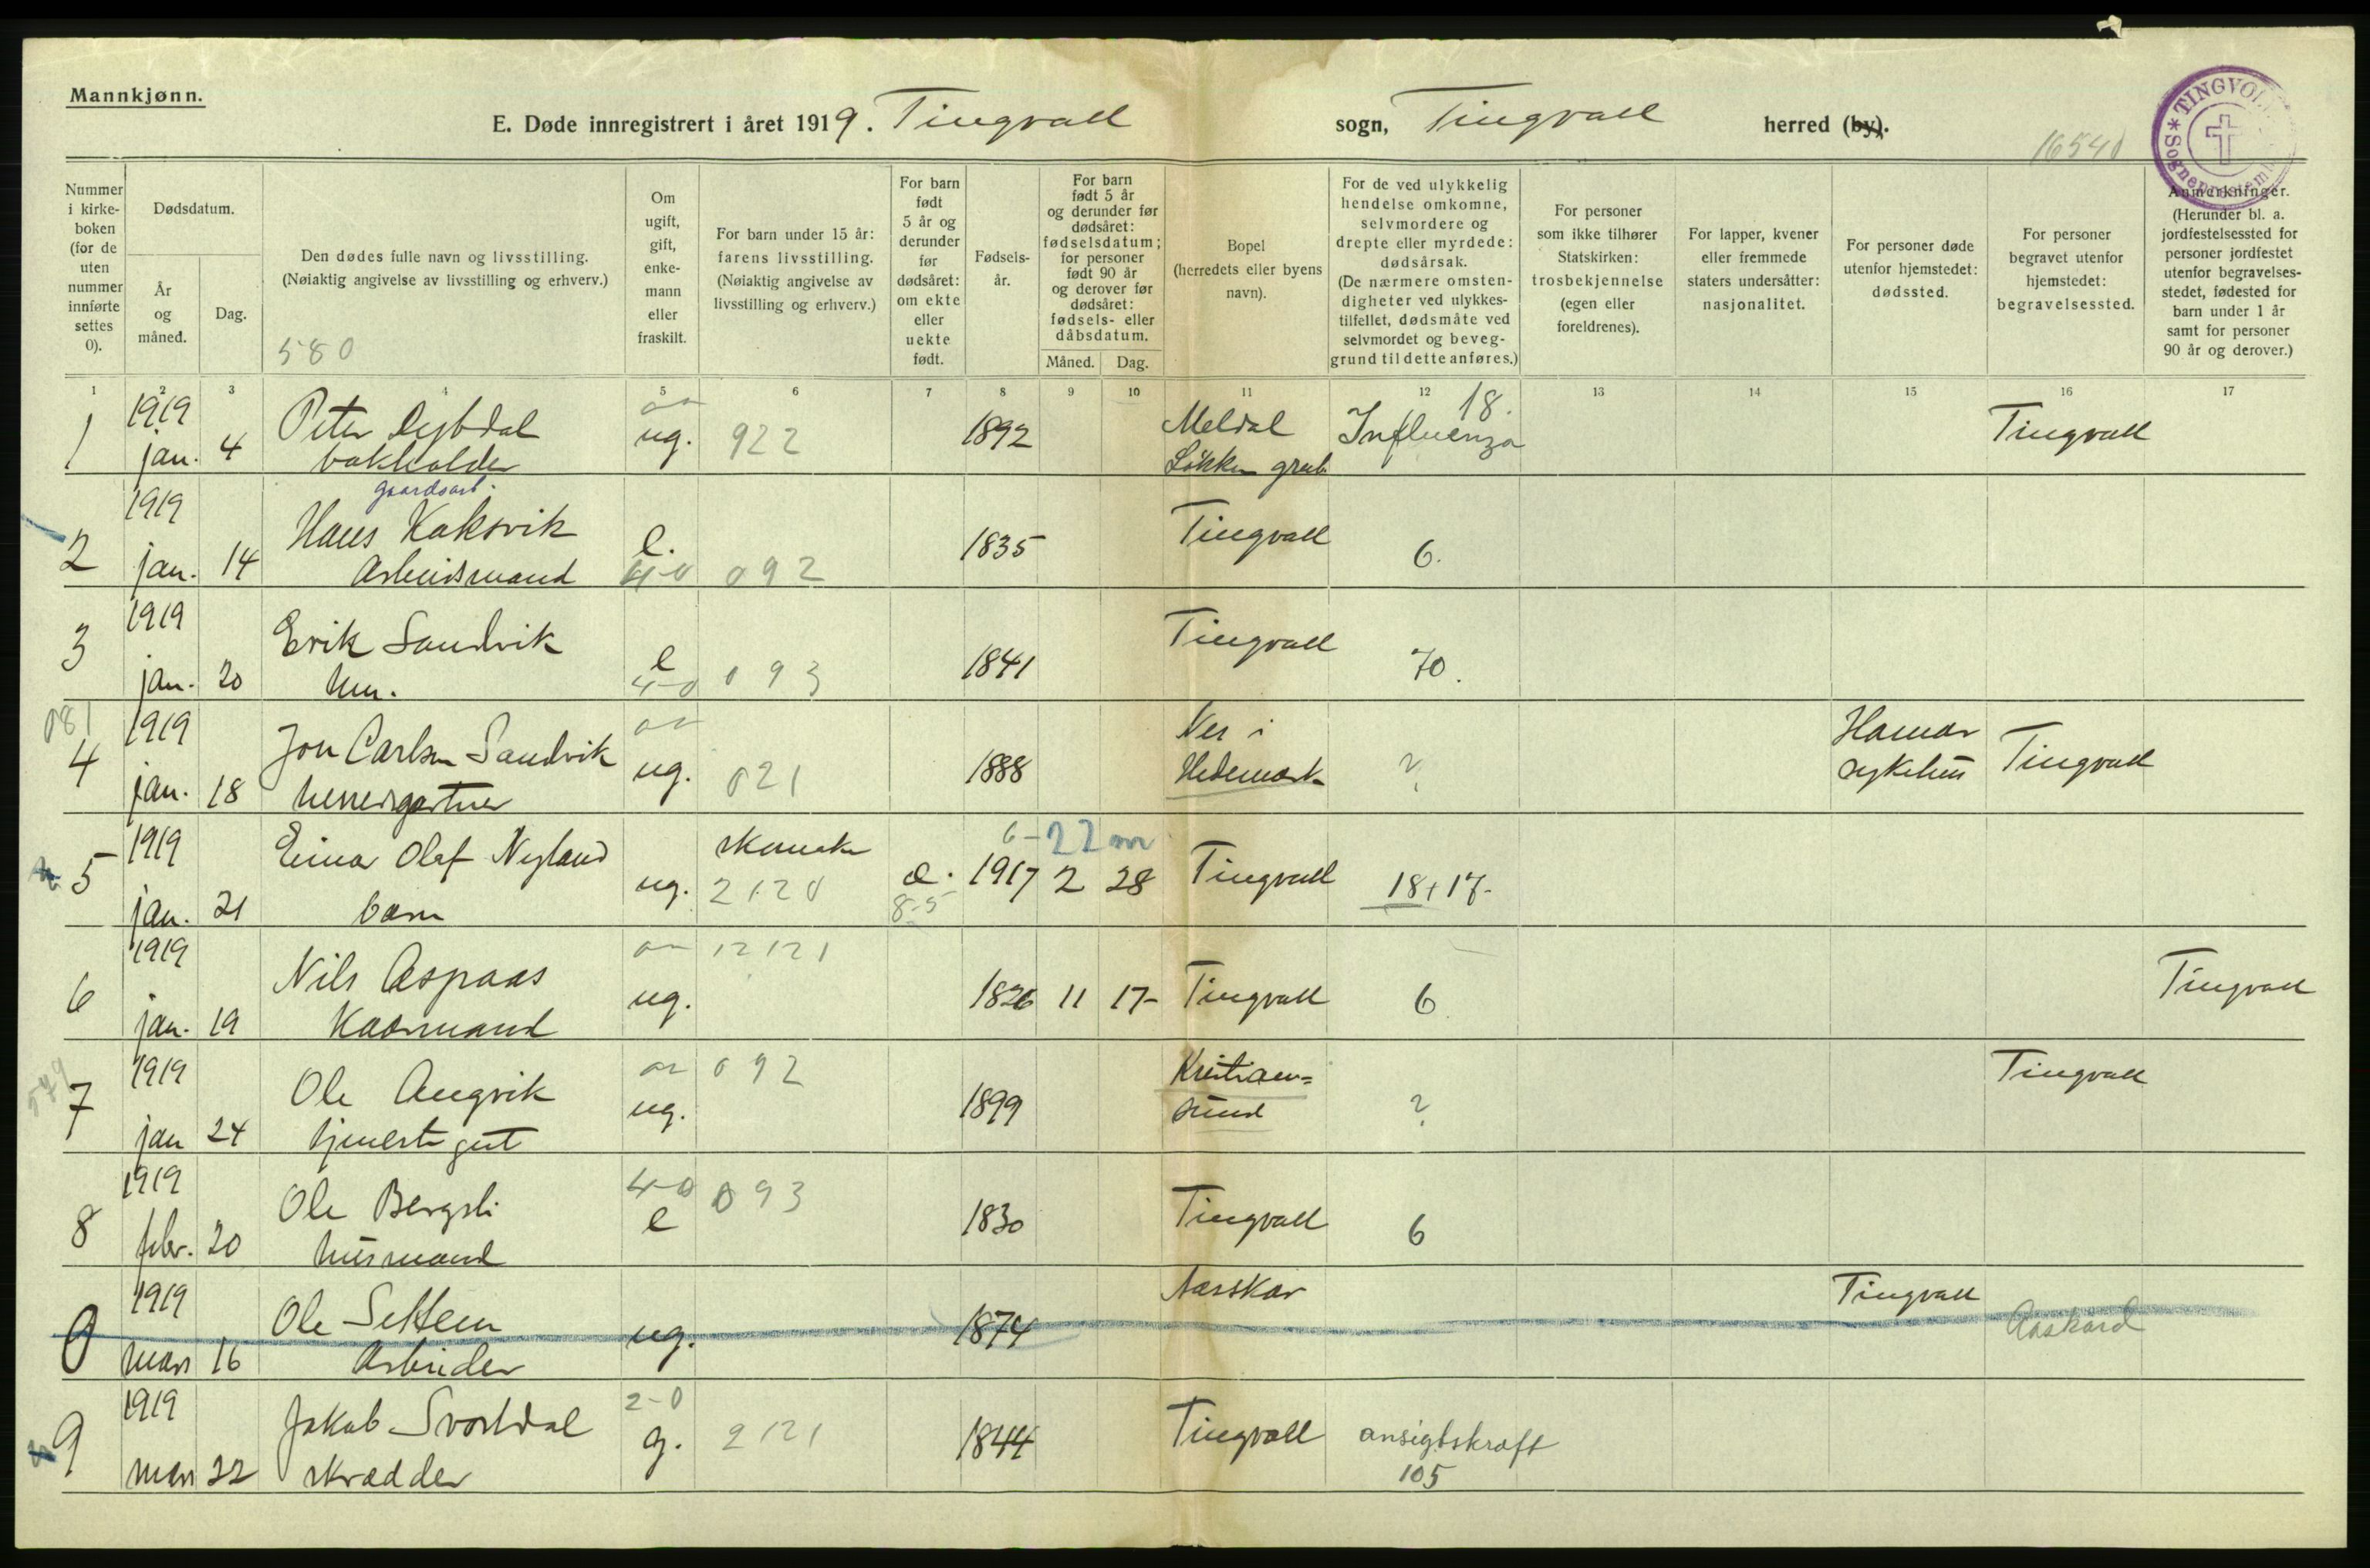 Mannkjønn.
E. Døde innregistrert i året 1919. Tingvoll sogn, Tingvoll herred (by).
16540
TINGVOLL
Nummer i kirke-boken (for de uten nummer innførte settes 0).
Dødsdatum.
År og måned.
Dag.
Den dødes fulle navn og livsstilling.
(Nøiaktig angivelse av livsstilling og erhverv.)
580
Om ugift, gift, enke-mann eller fraskilt.
For barn under 15 år: farens livsstilling.
(Nøiaktig angivelse av livsstilling og erhverv.)
For barn født 5 år og derunder før dødsåret: om ekte eller uekte født.
Fødsels-år.
For barn født 5 år og derunder før dødsåret: fødselsdatum; for personer født 90 år og derover før dødsåret: fødsels- eller dåbsdatum.
Måned. Dag.
Bopel (herredets eller byens navn).
For de ved ulykkelig hendelse omkomne, selvmordere og drepte eller myrdede: dødsårsak.
(De nærmere omsten-digheter ved ulykkes-tilfellet, dødsmåte ved selvmordet og beveg-grund til dette anføres.)
For personer som ikke tilhører Statskirken: trosbekjennelse (egen eller foreldrenes).
For lapper, kvener eller fremmede staters undersåtter: nasjonalitet.
For personer døde utenfor hjemstedet: dødssted.
For personer begravet utenfor hjemstedet: begravelsessted.
Anmerkninger.
(Herunder bl. a. jordfestelsessted for personer jordfestet utenfor begravelses-stedet, fødested for barn under 1 år samt for personer 90 år og derover.)
1 2 3 4 5 6 7 8 9 10 11 12 13 14 15 16 17
1 1919 jan. 4 Peter Dybdal bokholder ug. 922 1892 Meldal Løkken grub. 18. Influenza Tingvoll
2 1919 jan. 14 gaardsarb. Hans Koksvik Arbeidsmand e. 4-0 092 1835 Tingvoll 6.
3 1919 jan. 20 Erik Sandvik hm. e 4-0 093 1841 Tingvoll 70.
081
4 1919 jan. 18 Jon Carlsen Sandvik ug. 021 1888 Nes i Hedemark ? Hamar sykehus Tingvoll
5 1919 jan. 21 Einar Olaf Nyland barn ug. 2120 e. 8-5 6-22 m 1917 2 28 Tingvoll 18+17.
6 1919 jan. 19 Nils Aspaas Kaarmand ug. 12121 1826 11 17- Tingvoll 6 Tingvoll
579
7 1919 jan 24 Ole Angvik tjenestegut ug. 092 1899 Kristian=sund ? Tingvoll
8 1919 febr. 20 Ole Bergsli husmand 4-0 e 093 1830 Tingvoll 6
0 1919 mars 16 Ole Settem Arbeider ug. 1874 Aasskar Tingvoll Aaskard
9 1919 mars 22 Jakob Svortdal skrædder 2-0 g. 2121 1844 Tingvoll ansigtskræft 105